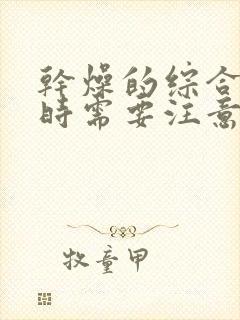 幹燥的综合
時需要注意
牧童甲